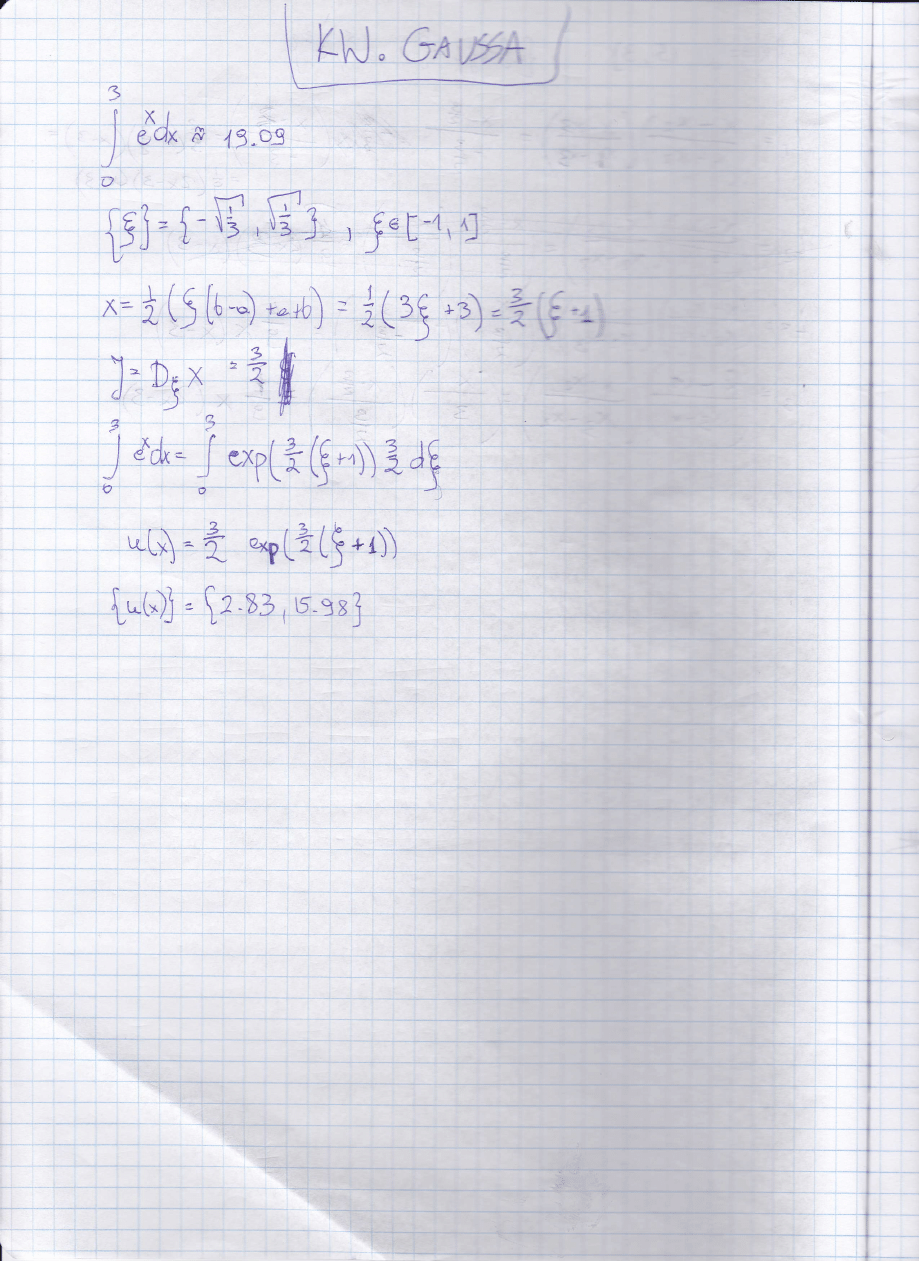 KW. GAUSSA
∫₀³ eˣdx ≈ 19.09
{ξ} = {-√(1/3), √(1/3)}, ξ∈[-1, 1]
x = 1/2 (ξ(b-a)+a+b) = 1/2 (3ξ+3) = 3/2 (ξ+1)
J = D_ξ x = 3/2
∫₀³ eˣdx = ∫₀³ exp(3/2 (ξ+1)) 3/2 dξ
u(x) = 3/2 exp(3/2 (ξ+1))
{u(x)} = {2.83, 15.98}